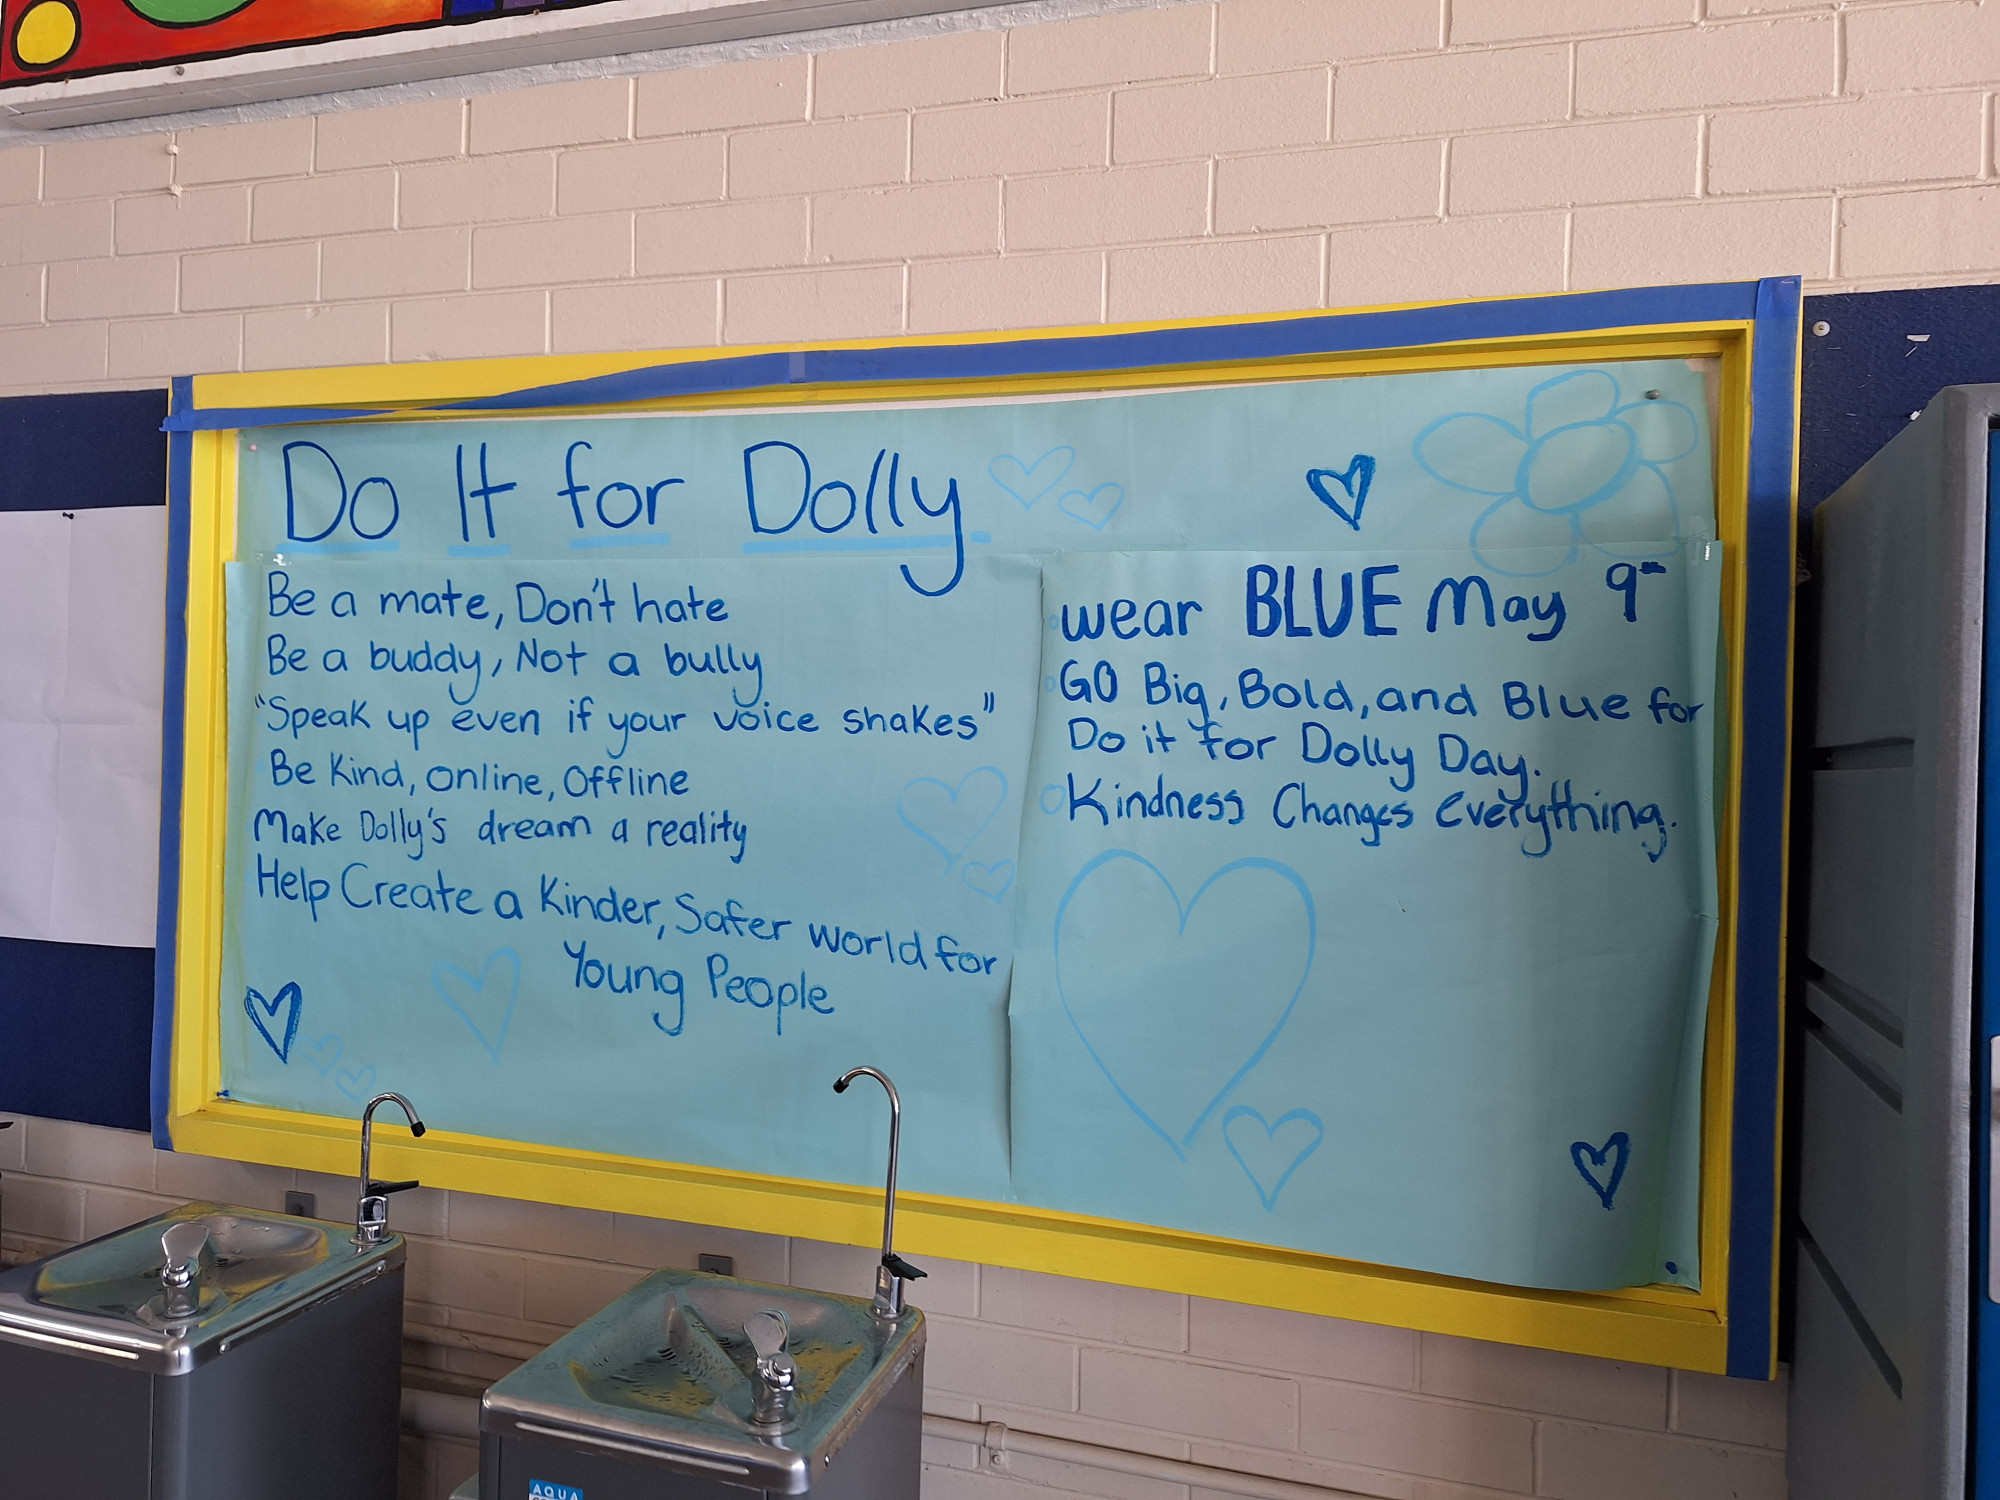 Do It for Dolly
Be a mate, Don't hate
Be a buddy, Not a bully
"Speak up even if your voice shakes"
Be Kind, Online, Offline
Make Dolly's dream a reality
Help Create a Kinder, Safer world for
Young People
wear BLUE May 9th
GO Big, Bold, and Blue for
Do it for Dolly Day.
Kindness Changes Everything.
AQUA